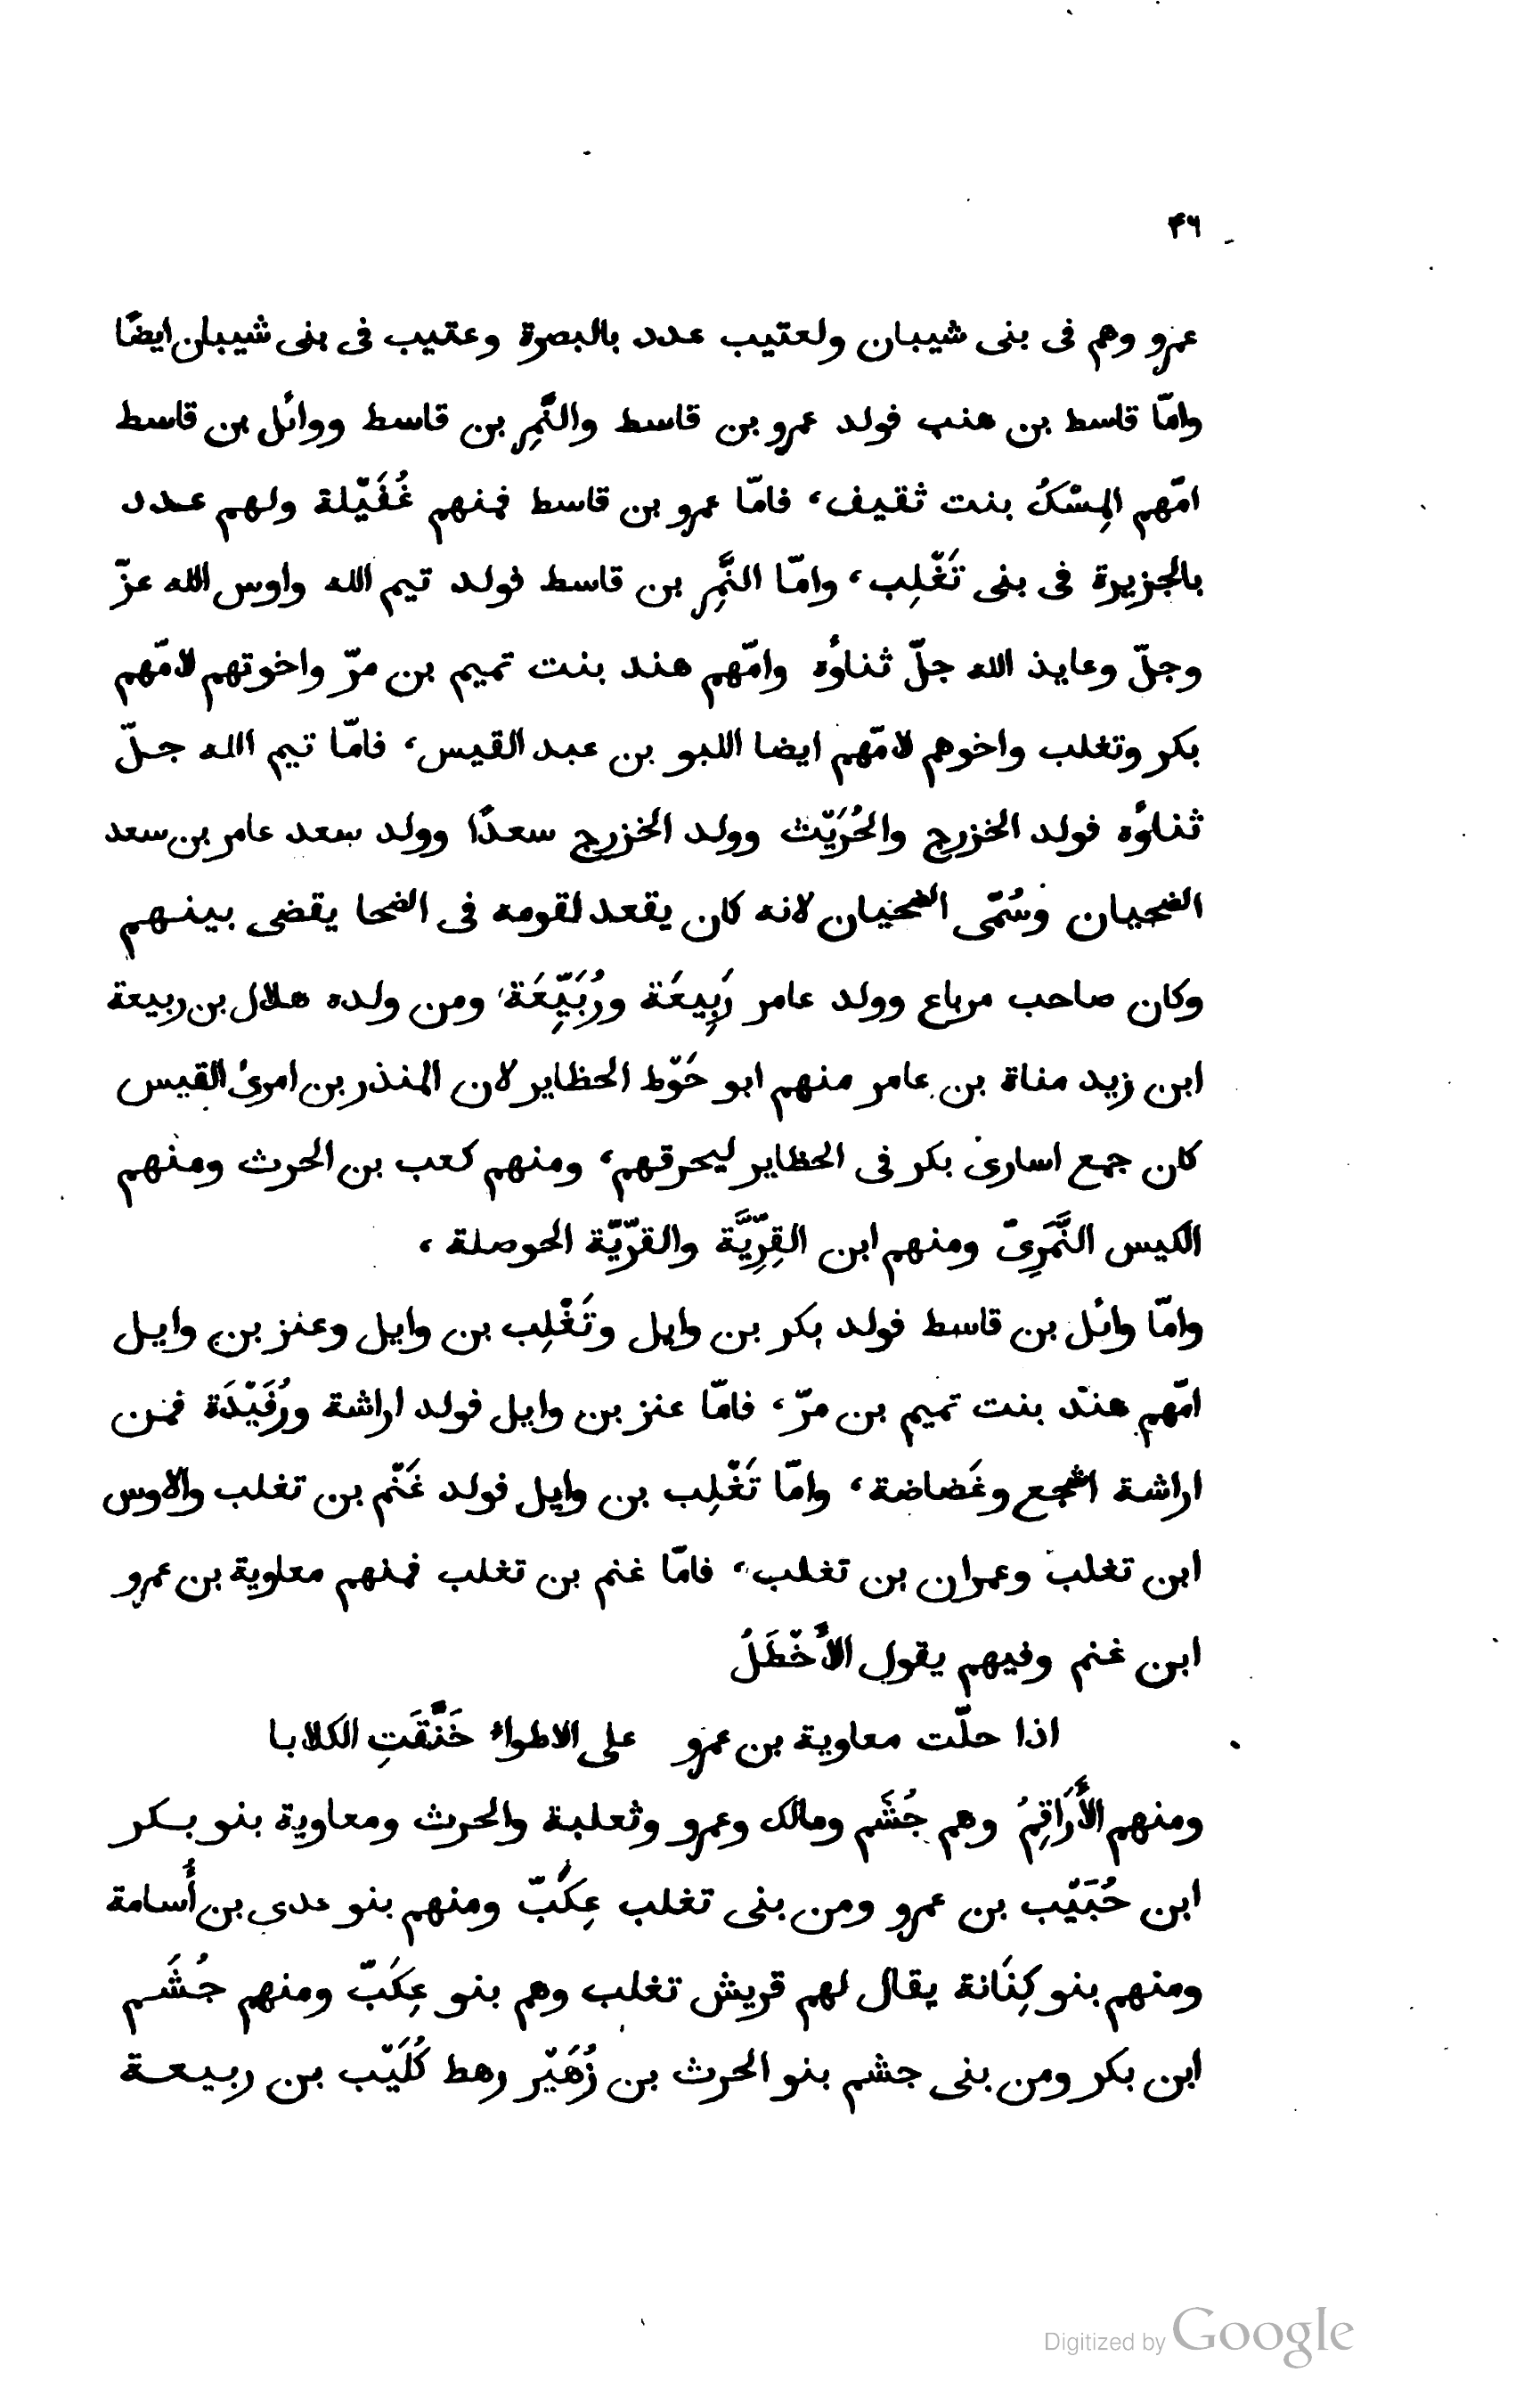 ۴۶
عمرو وهم فى بنى شيبان ولعتيب عدد بالبصرة وعتيب فى بنى شيبان ايضًا
وامّا قاسط بن هنب فولد عمرو بن قاسط والنَّمِر بن قاسط ووائل بن قاسط
امّهم المِسْكُ بنت ثقيف، فامّا عمرو بن قاسط فمنهم غُفَيْلة ولهم عدد
بالجزيرة فى بنى تَغْلِب، وامّا النَّمِر بن قاسط فولد تيم الله واوس الله عزّ
وجلّ وعايذ الله جلّ ثناؤه وامّهم هند بنت تميم بن مرّ واخوتهم لامّهم
بكر وتغلب واخوهم لامّهم ايضا اللبو بن عبد القيس، فامّا تيم الله جلّ
ثناؤه فولد الخزرج والحُرَيْث وولد الخزرج سعدًا وولد سعد عامر بن سعد
الضحيان وسُمّى الضحيان لانه كان يقعد لقومه فى الضحا يقضى بينهم
وكان صاحب مرباع وولد عامر رَبِيعَة ورُبَيِّعَة، ومن ولده هلال بن ربيعة
ابن زيد مناة بن عامر منهم ابو حَوْط الحظاير لان المنذر بن امرئ القيس
كان جمع اسارى بكر فى الحظاير ليحرقهم، ومنهم كعب بن الحرث ومنهم
الكيس النَّمَرِىّ ومنهم ابن القِرِّيَّة والقرّيّة الحوصلة،
وامّا وائل بن قاسط فولد بكر بن وايل وتَغْلِب بن وايل وعنز بن وايل
امّهم هند بنت تميم بن مرّ، فامّا عنز بن وايل فولد اراشة ورُفَيْدَة فمن
اراشة اشجع وغَضاضة، وامّا تَغْلِب بن وايل فولد غَنْم بن تغلب والاوس
ابن تغلب وعمران بن تغلب، فامّا غنم بن تغلب فمنهم معاوية بن عمرو
ابن غنم وفيهم يقول الأَخْطَلُ
اذا حلّت معاوية بن عمرو على الاطواء خَنَّقَتِ الكلابا
ومنهم الأَرَاقِمُ وهم جُشَم ومالك وعمرو وثعلبة والحرث ومعاوية بنو بكر
ابن حُبَيْب بن عمرو ومن بنى تغلب عِكَبّ ومنهم بنو عدى بن أُسامة
ومنهم بنو كِنَانة يقال لهم قريش تغلب وهم بنو عِكَبّ ومنهم جُشَم
ابن بكر ومن بنى جشم بنو الحرث بن زُهَيْر رهط كُلَيْب بن ربيعة
Digitized by Google